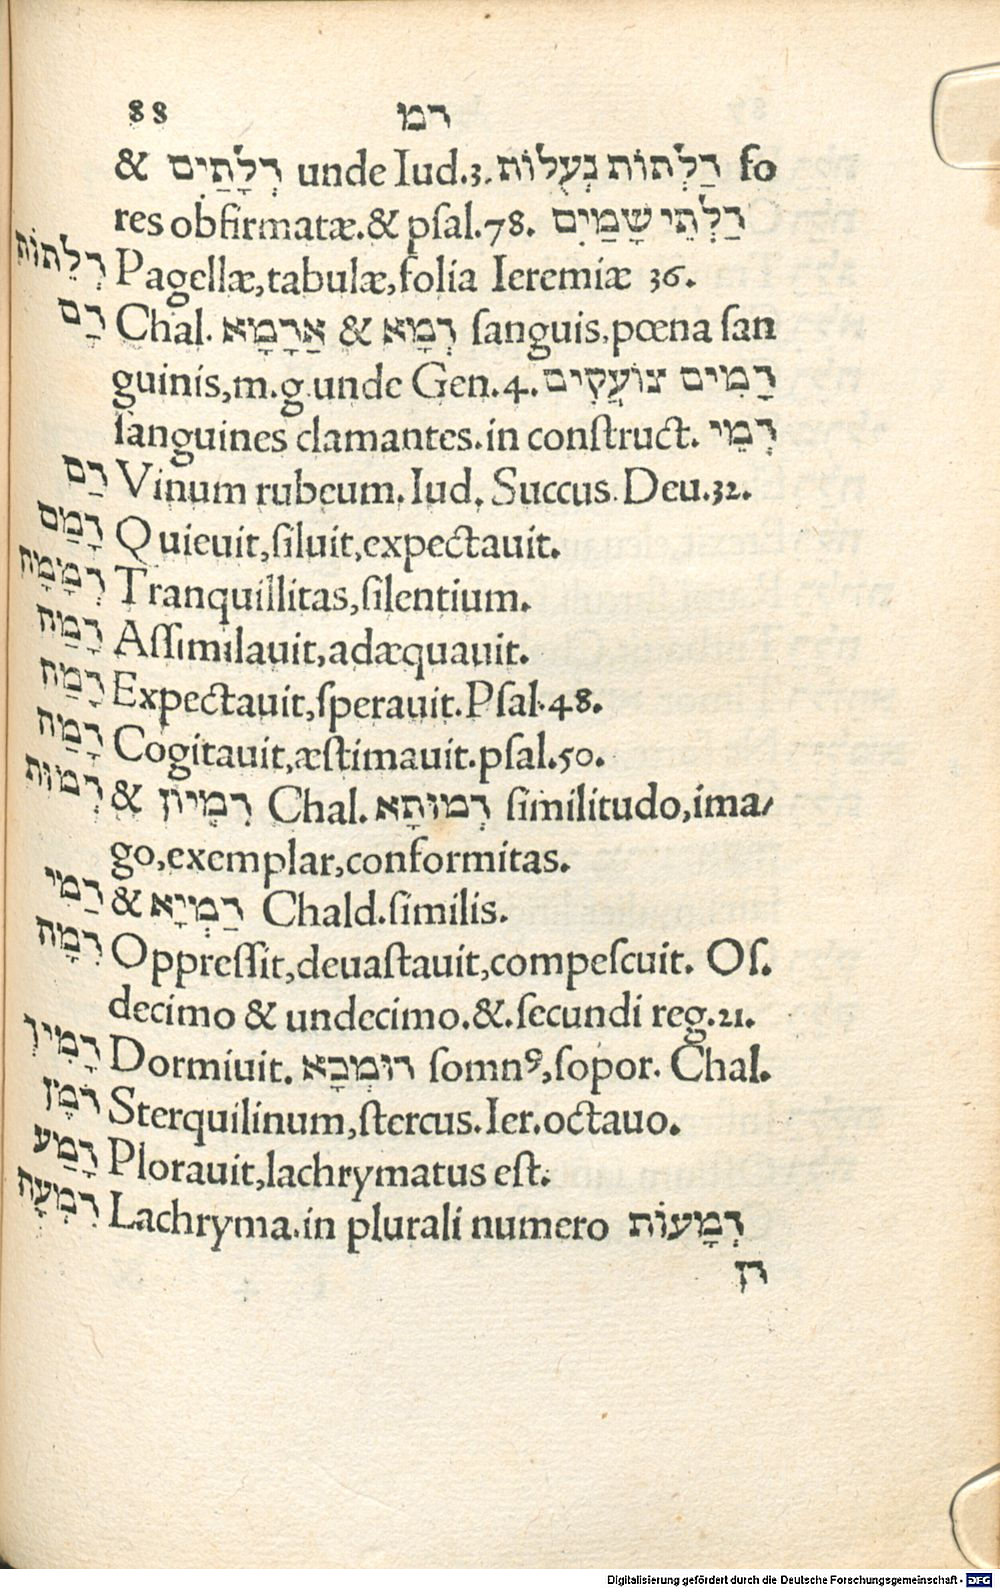 88 דמ
& דְלָתַיִם unde Iud.3. דַלְתוֹת נְעֻלוֹת fo
res obfirmatæ.& pſal.78. דַלְתֵי שָמַיִם
דְלֵתוֹת Pagellæ,tabulæ,folia Ieremiæ 36.
דָם Chal. דְמָא & אַדָמָא ſanguis,pœna ſan
guinis,m.g.unde Gen.4. דָמִים צוֹעֲקִים
ſanguines clamantes.in conſtruct. דְמֵי
דַם Vinum rubeum. Iud. Succus. Deu.32.
דָמַם Quieuit,ſiluit,expectauit.
דְמָמָה Tranquillitas,ſilentium.
דָמַה Aſſimilauit,adæquauit.
דָמַה Expectauit,ſperauit.Pſal.48.
דָמַה Cogitauit,æſtimauit.pſal.50.
דְמוּת & דִמְיוֹן Chal. דְמוּתָא ſimilitudo,ima/
go,exemplar,conformitas.
דַמי & דַמְיָא Chald.ſimilis.
דִמָה Oppreſſit,deuaſtauit,compeſcuit. Oſ.
decimo & undecimo.&.ſecundi reg.21.
דָמִיךְ Dormiuit. דוּמְכָא ſomnꝰ,ſopor. Chal.
דֹמֶן Sterquilinum,ſtercus.Ier.octauo.
דָמַע Plorauit,lachrymatus eſt.
דִמְעָה Lachryma.in plurali numero דְמָעוֹת
דן
Digitalisierung gefördert durch die Deutsche Forschungsgemeinschaft - DFG